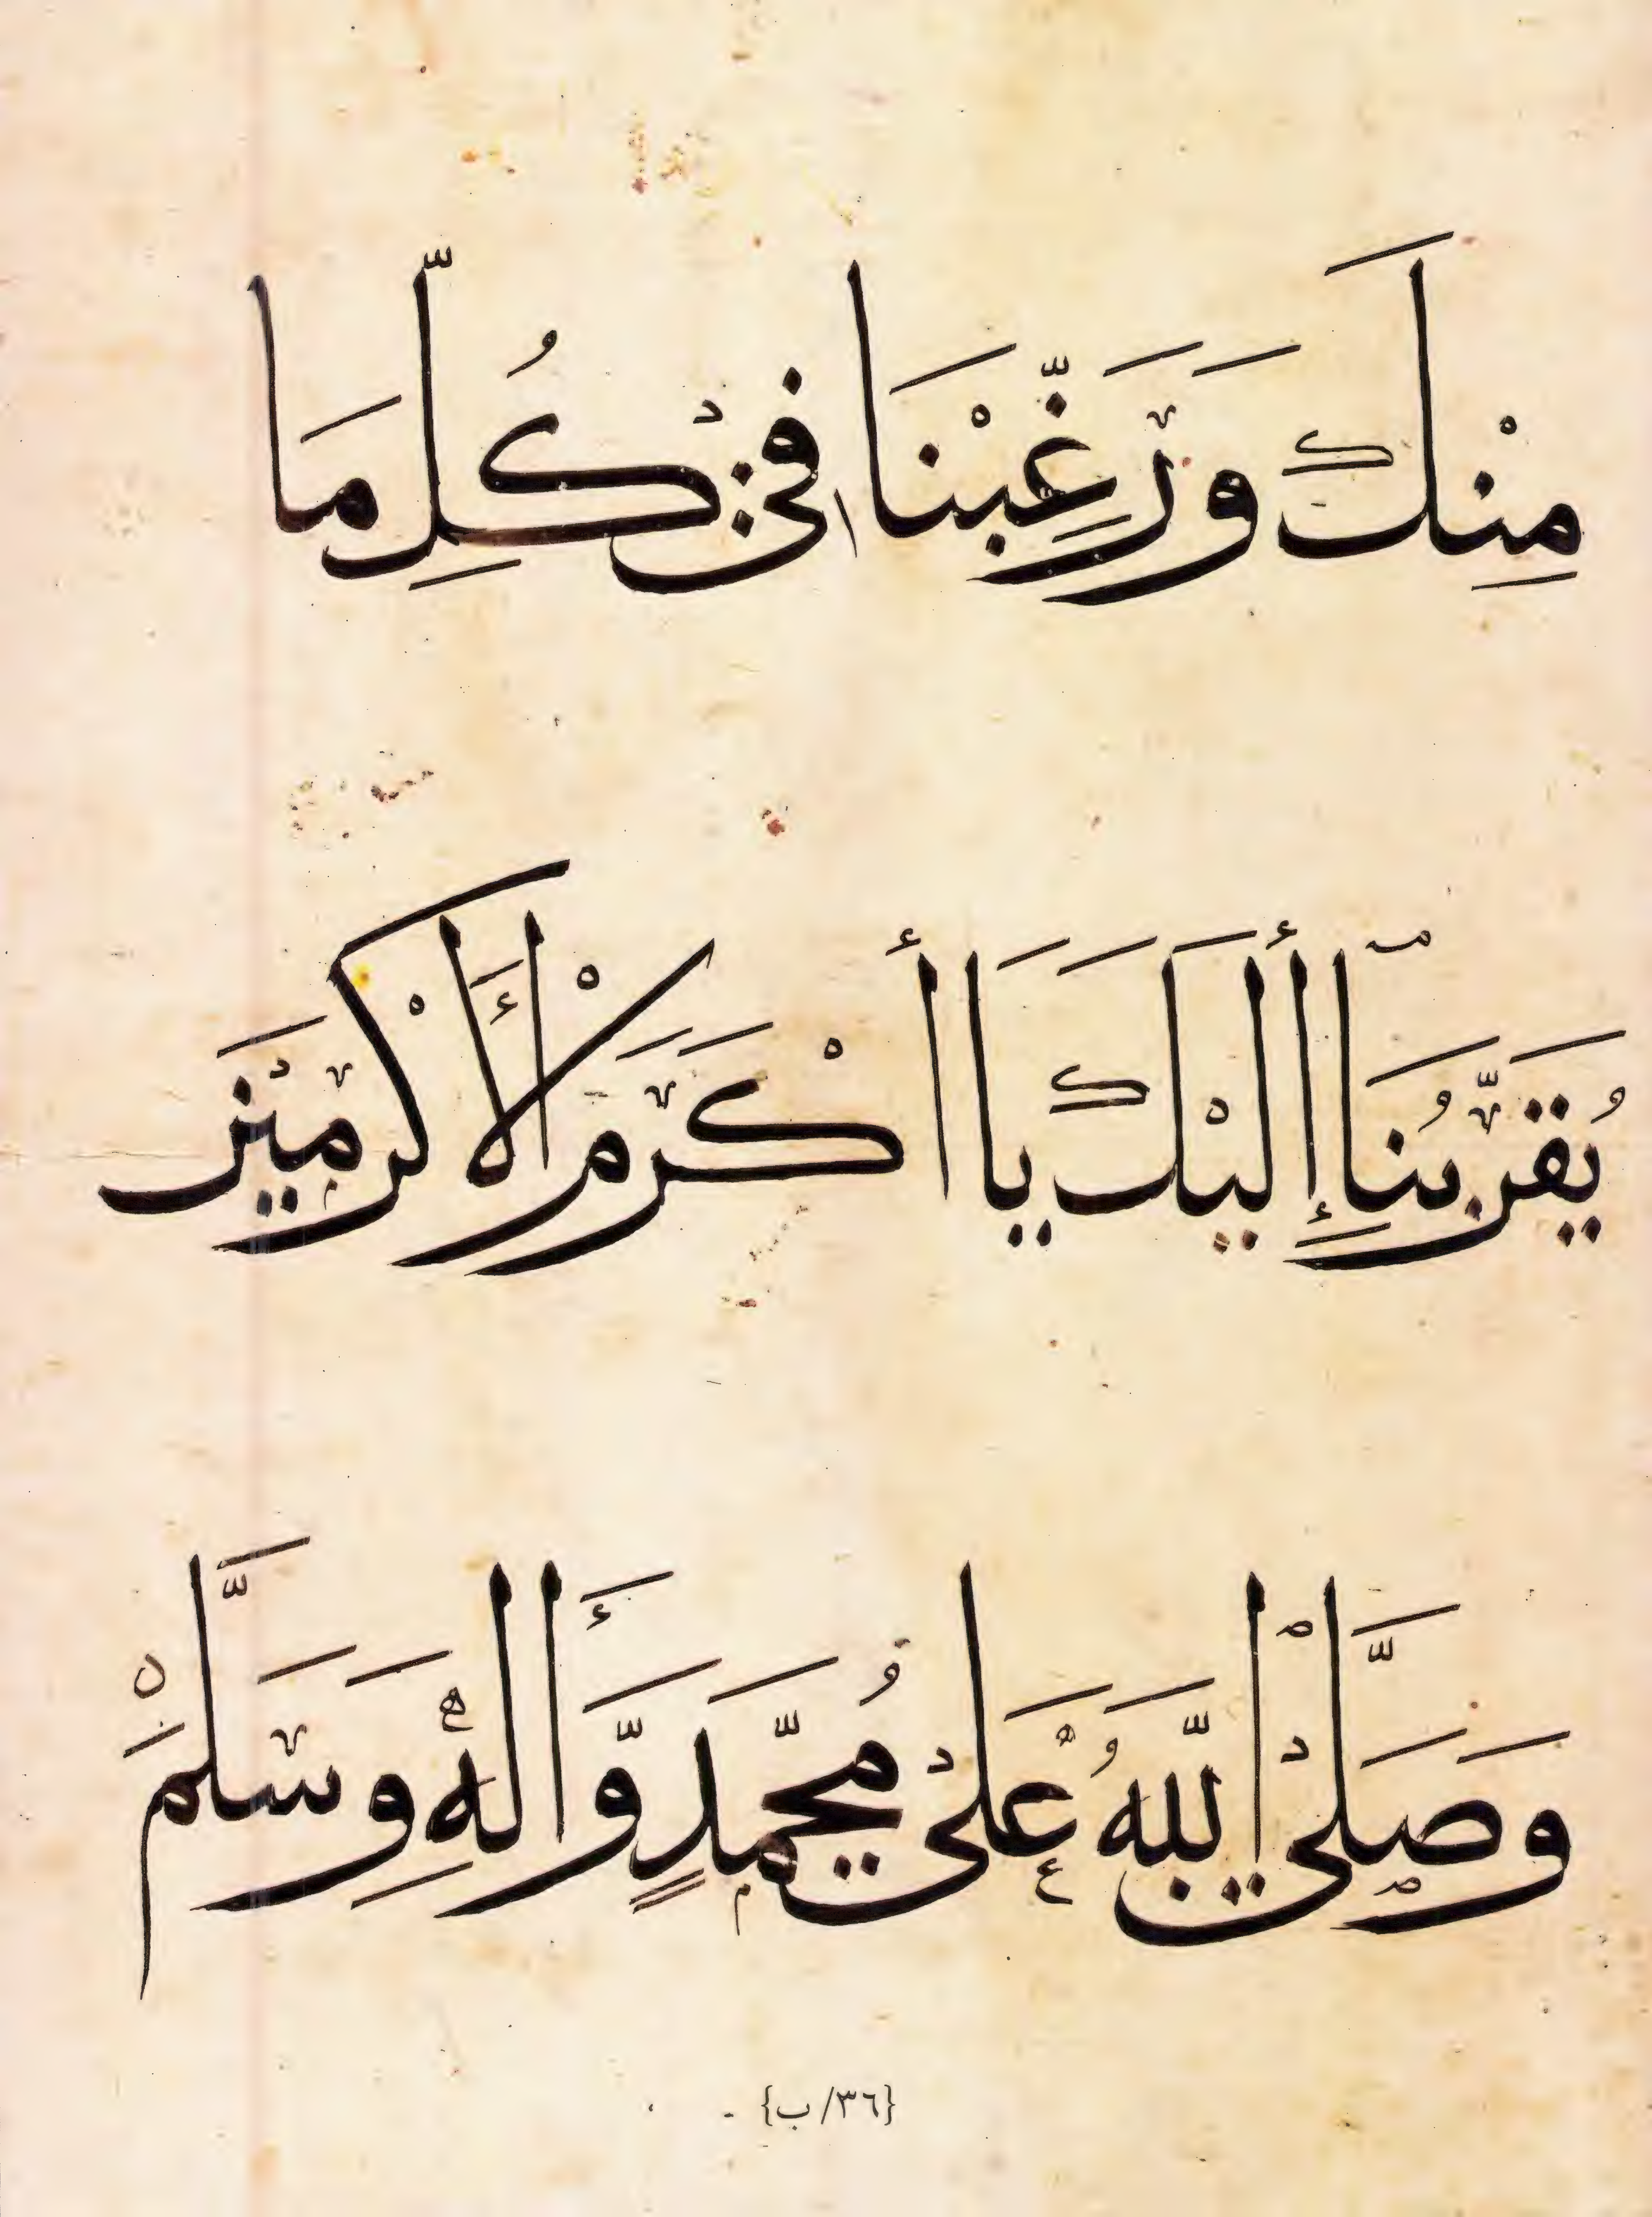 مِنْكَ وَرَغِّبْنَا فِي كُلِّ مَا
يُقَرِّبُنَا إِلَيْكَ يَا أَكْرَمَ الْأَكْرَمِيْنَ
وَصَلَّى اللّٰهُ عَلٰى مُحَمَّدٍ وَّأَالِهٖ وَسَلَّمَ
{٣٦/ب}